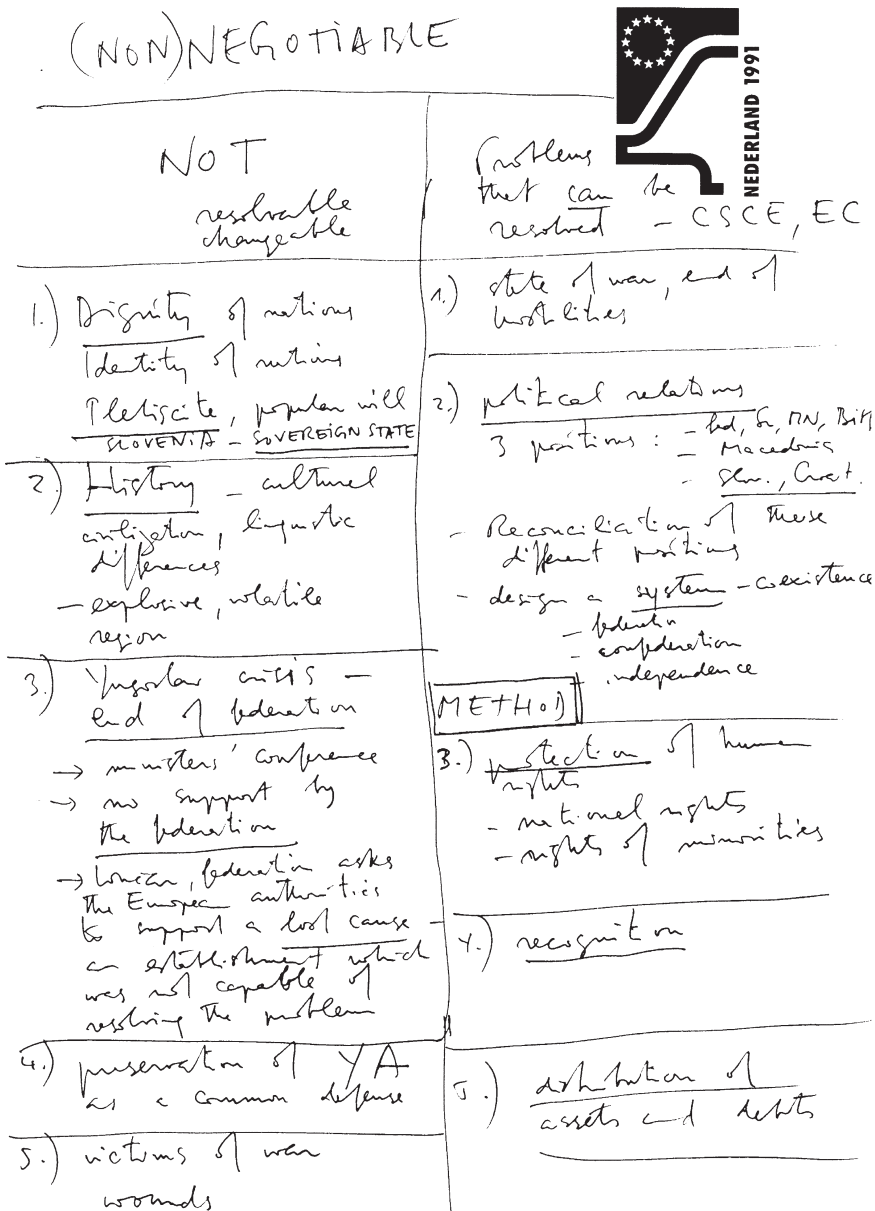 (NON)NEGOTIABLE
NEDERLAND 1991
NOT
resolvable
changeable
Problems
that can be
resolved - CSCE, EC
1.) Dignity of nations
Identity of nations
Plebiscite, popular will
SLOVENIA - SOVEREIGN STATE
2.) History - cultural
civilization, linguistic
differences
- explosive, volatile
region
3.) Yugoslav crisis -
end of federation
→ ministers' conference
→ no support by
the federation
→ federation asks
the European authorities
to support a lost cause -
an establishment which
was not capable of
resolving the problem
4.) preservation of YA
as a common defense
5.) victims of war
wounds
1.) state of war, end of
hostilities
2.) political relations
3 positions : - MN, BiH
- Macedonia
- Slov., Croat.
- Reconciliation of these
different positions
- design a system - coexistence
- federation
- confederation
- independence
METHOD
3.) protection of human
rights
- national rights
- rights of minorities
4.) recognition
5.) distribution of
assets and debts